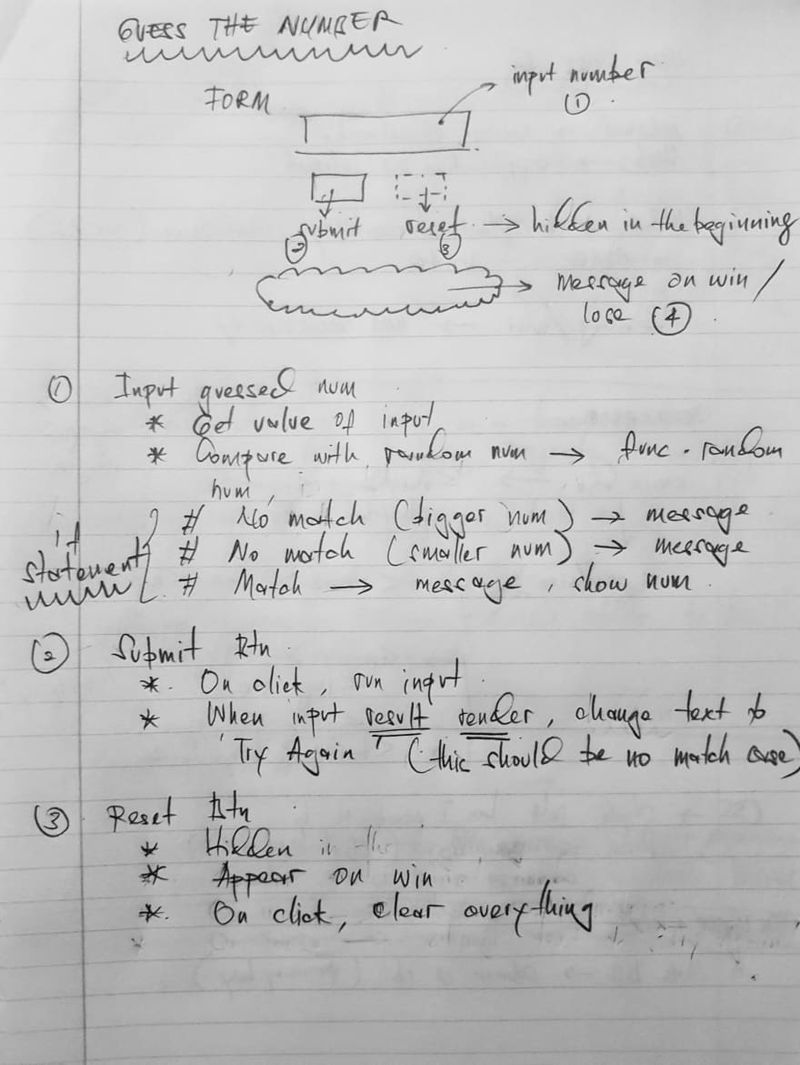 GUESS THE NUMBER
FORM
input number
①
submit reset → hidden in the beginning
② ③
message on win /
lose ④
① Input guessed num
* Get value of input
* Compare with random num → func. random
num,
if statement
# No match (bigger num) → message
# No match (smaller num) → message
# Match → message, show num
② Submit Btn
* On click, run input
* When input result render, change text to
'Try Again' (this should be no match case)
③ Reset Btn
* Hidden in the
* Appear on win
* On click, clear everything